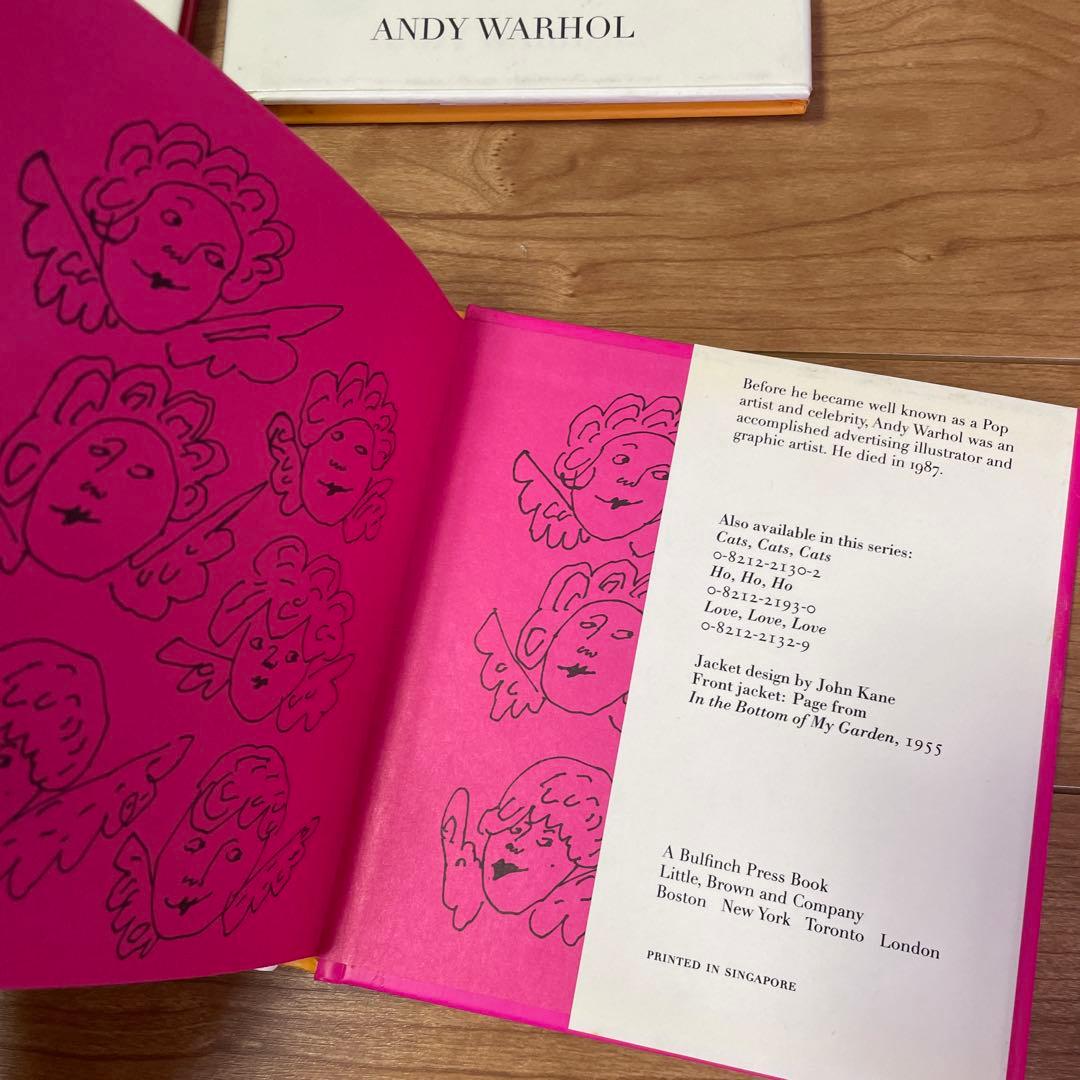 ANDY WARHOL
Before he became well known as a Pop
artist and celebrity, Andy Warhol was an
accomplished advertising illustrator and
graphic artist. He died in 1987.
Also available in this series:
Cats, Cats, Cats
0-8212-2130-2
Ho, Ho, Ho
0-8212-2193-0
Love, Love, Love
0-8212-2132-9
Jacket design by John Kane
Front jacket: Page from
In the Bottom of My Garden, 1955
A Bulfinch Press Book
Little, Brown and Company
Boston New York Toronto London
PRINTED IN SINGAPORE